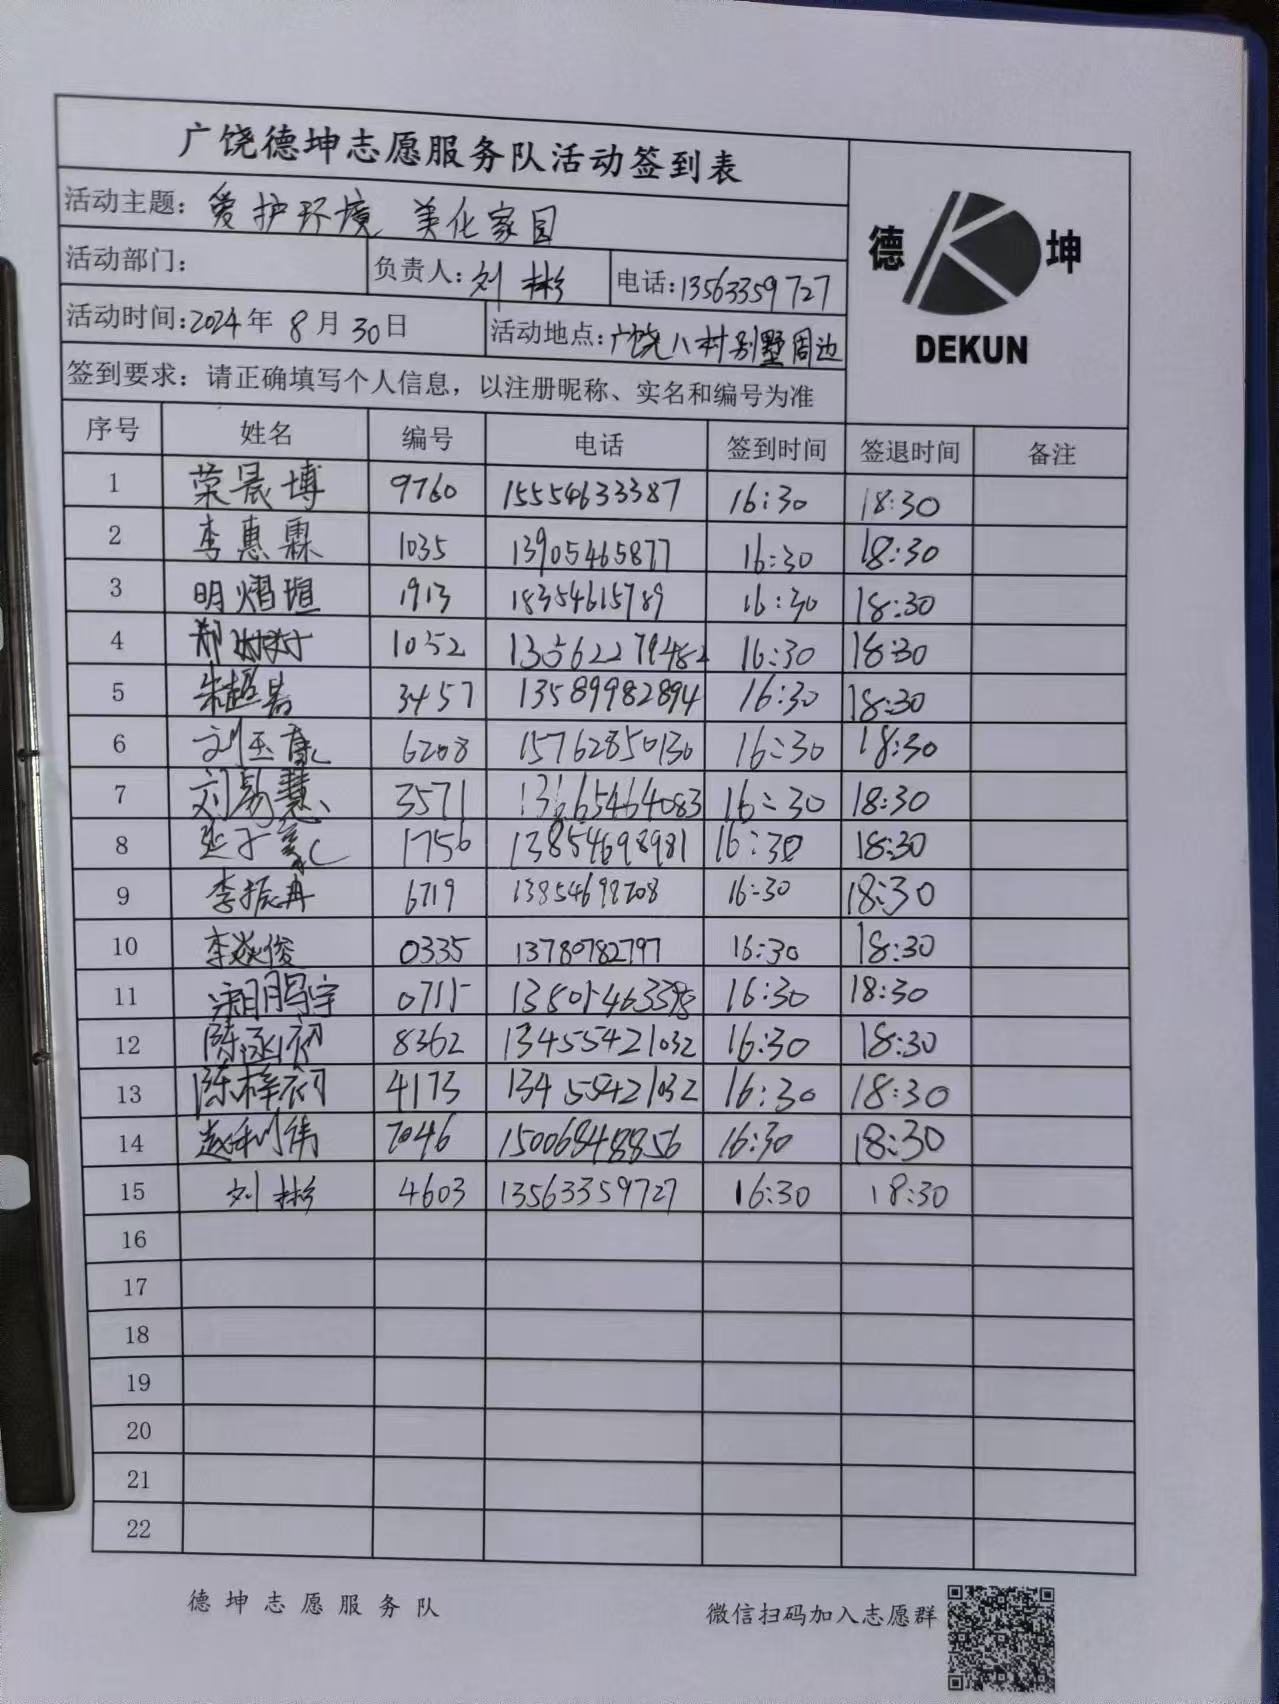 广饶德坤志愿服务队活动签到表
活动主题：爱护环境 美化家园
德 坤
DEKUN
活动部门： 负责人：刘彬 电话：13563359727
活动时间：2024年8月30日 活动地点：广饶八村别墅周边
签到要求：请正确填写个人信息，以注册昵称、实名和编号为准
序号 姓名 编号 电话 签到时间 签退时间 备注
1 荣晟博 9760 15554633387 16:30 18:30
2 李惠霖 1035 13905465877 16:30 18:30
3 明熠瑄 1913 18354615789 16:30 18:30
4 郑树树 1052 13562279482 16:30 18:30
5 3457 13589982894 16:30 18:30
6 刘玉康 6208 15762850130 16:30 18:30
7 刘易慧 3571 13665464083 16:30 18:30
8 张子豪 1756 13854698981 16:30 18:30
9 李振冉 6719 13854698708 16:30 18:30
10 李焱俊 0335 13780782797 16:30 18:30
11 0715 16:30 18:30
12 陈函初 8362 13455421032 16:30 18:30
13 陈梓初 4173 13455421032 16:30 18:30
14 赵利伟 7046 15006848856 16:30 18:30
15 刘彬 4603 13563359727 16:30 18:30
16
17
18
19
20
21
22
德坤志愿服务队 微信扫码加入志愿群